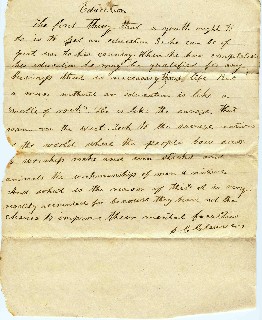 Education
The first thing that a youth ought to
do is to get an education So he can be of
great use to his country. When he has completed
his education he may be qualified for any
business that is necessary through life But
a man without an education is like a
he is like the savage that
roams over the west. Look to the savage nations
of the world where the people bow down
to worship rocks and even sticks and
animals the workmanship of man & nature
And what is the reason of that it is very
readily accounted for because they have not the
chances to improve their mental faculties